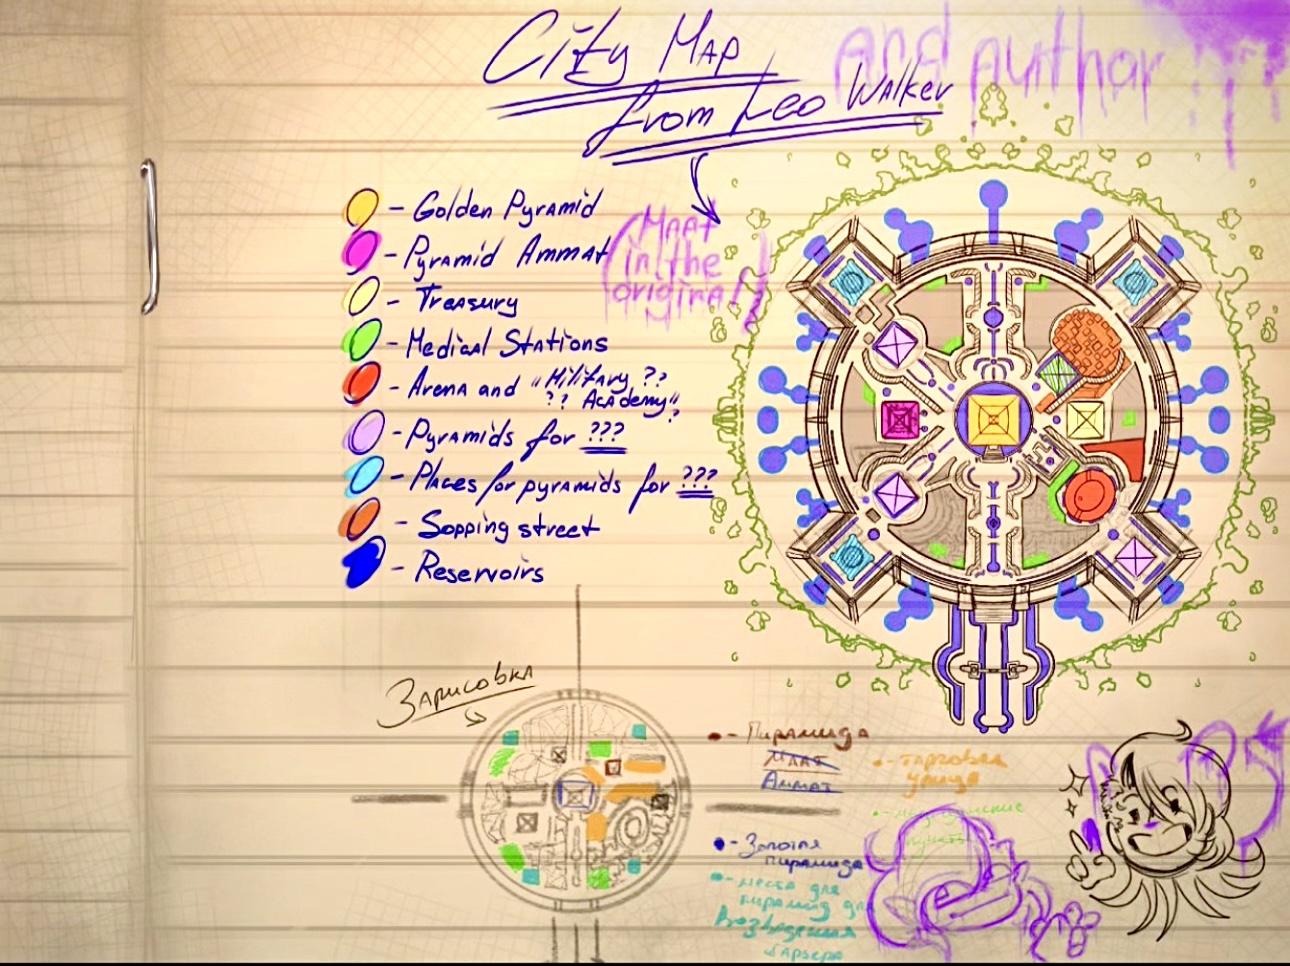 City Map
and author
from Leo Walker
(Maat
in the
original)
- Golden Pyramid
- Pyramid Ammat
- Treasury
- Medical Stations
- Arena and "Military ??
?? Academy" ?
- Pyramids for ???
- Places for pyramids for ???
- Sopping street
- Reservoirs
Зарисовка
- Пирамида
Маат
Аммат
- Золотая
пирамида
- места для
пирамид для
Возведения
барьера
- Торговая
улица
пункты